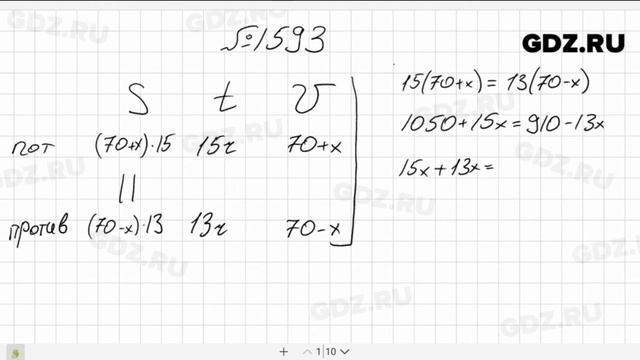 №1593
GDZ.RU
S t v
пот (70+x)·15 15ч 70+x
||
против (70-x)·13 13ч 70-x
15(70+x) = 13(70-x)
1050+15x = 910-13x
15x+13x=
GDZ.RU
GDZ.RU
GDZ.RU
GDZ.RU
GDZ.RU
GDZ.RU
GDZ.RU
1|10